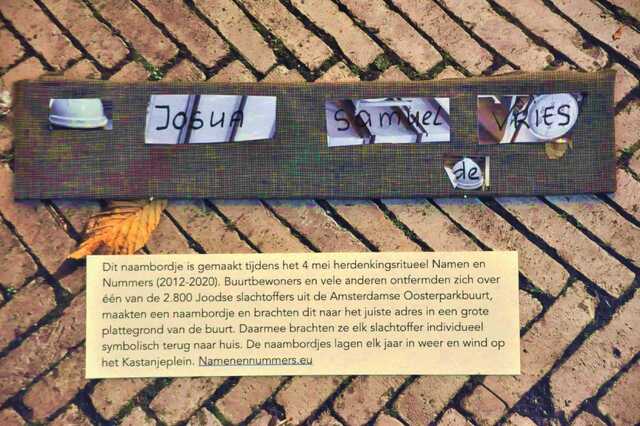 Josua Samuel VRIES
de
Dit naambordje is gemaakt tijdens het 4 mei herdenkingsritueel Namen en
Nummers (2012-2020). Buurtbewoners en vele anderen ontfermden zich over
één van de 2.800 Joodse slachtoffers uit de Amsterdamse Oosterparkbuurt,
maakten een naambordje en brachten dit naar het juiste adres in een grote
plattegrond van de buurt. Daarmee brachten ze elk slachtoffer individueel
symbolisch terug naar huis. De naambordjes lagen elk jaar in weer en wind op
het Kastanjeplein. Namenennummers.eu